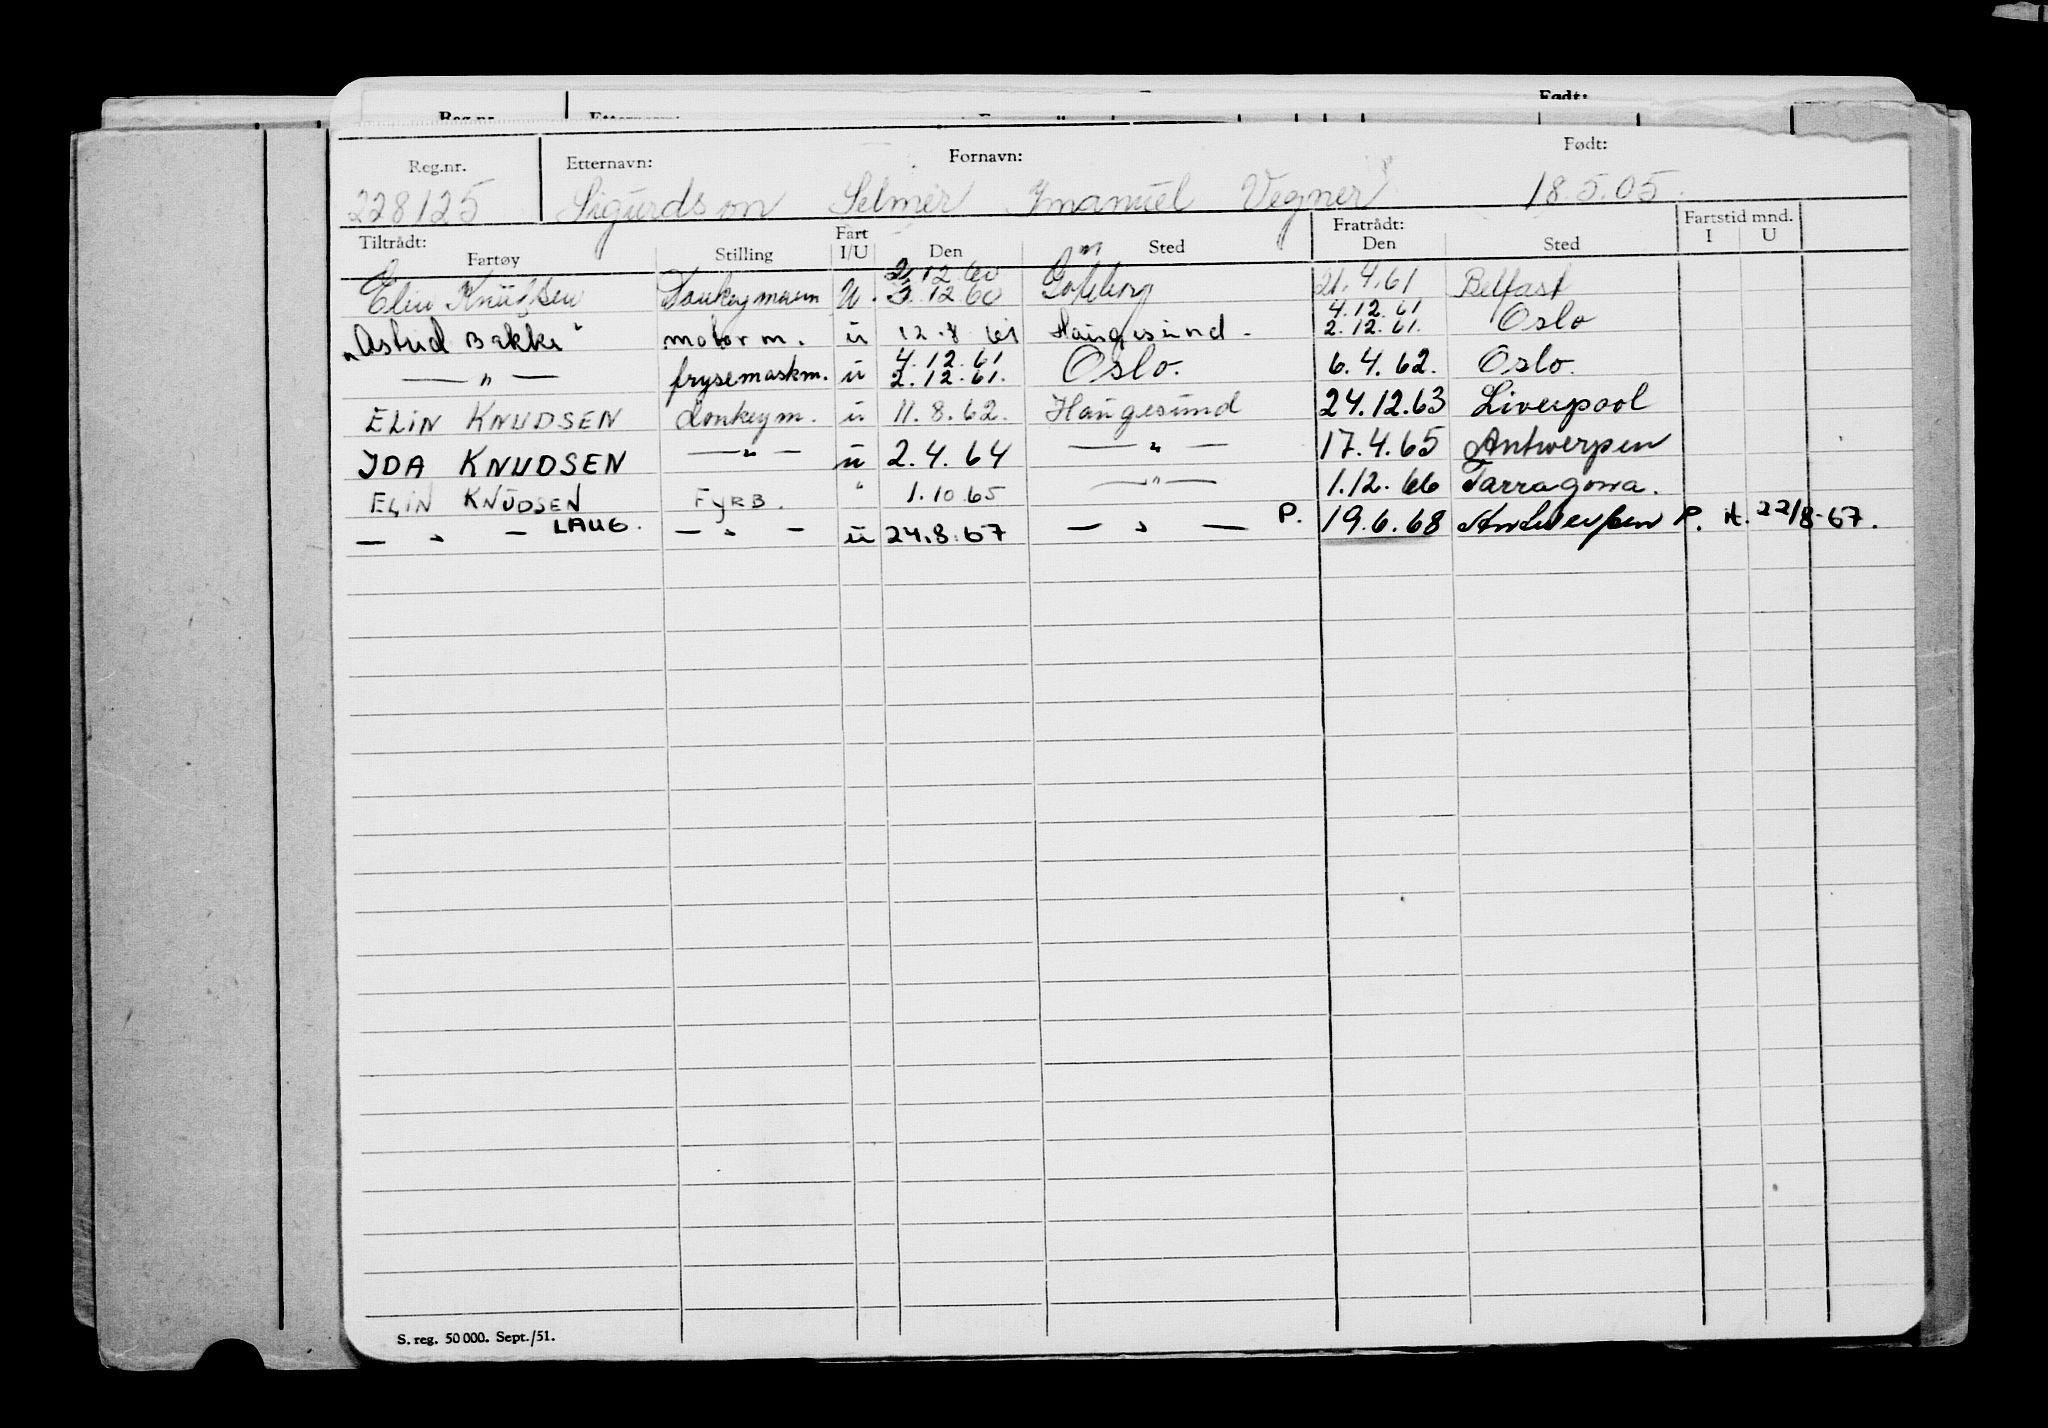 Født:
Reg.nr. Etternavn: Fornavn: Født:
228125 Sigurdson Selmer Imanuel Vegner 18.5.05.
Tiltrådt: Fart Fratrådt: Fartstid mnd.
Fartøy Stilling I/U Den Sted Den Sted I U
2.12.60
Elin Knudsen Donkeymann U. 3.12 60 Goteborg 21.4.61 Belfast
4.12.61
"Astrid Bakke" motorm. u 12.8 61 Haugesund. 2.12.61. Oslo
4.12.61
— " — frysemaskm. u 2.12.61. Oslo. 6.4.62. Oslo.
ELIN KNUDSEN donkeym. u 11.8.62. Haugesund 24.12.63 Liverpool
IDA KNUDSEN — " — u 2.4.64 — " — 17.4.65 Antwerpen
ELIN KNUDSEN FYRB. " 1.10.65 — " — 1.12.66 Tarragona.
— " — LAUG. — " — u 24.8.67 — " — P. 19.6.68 Antwerpen P. A. 22/8-67.
S. reg. 50 000. Sept./51.